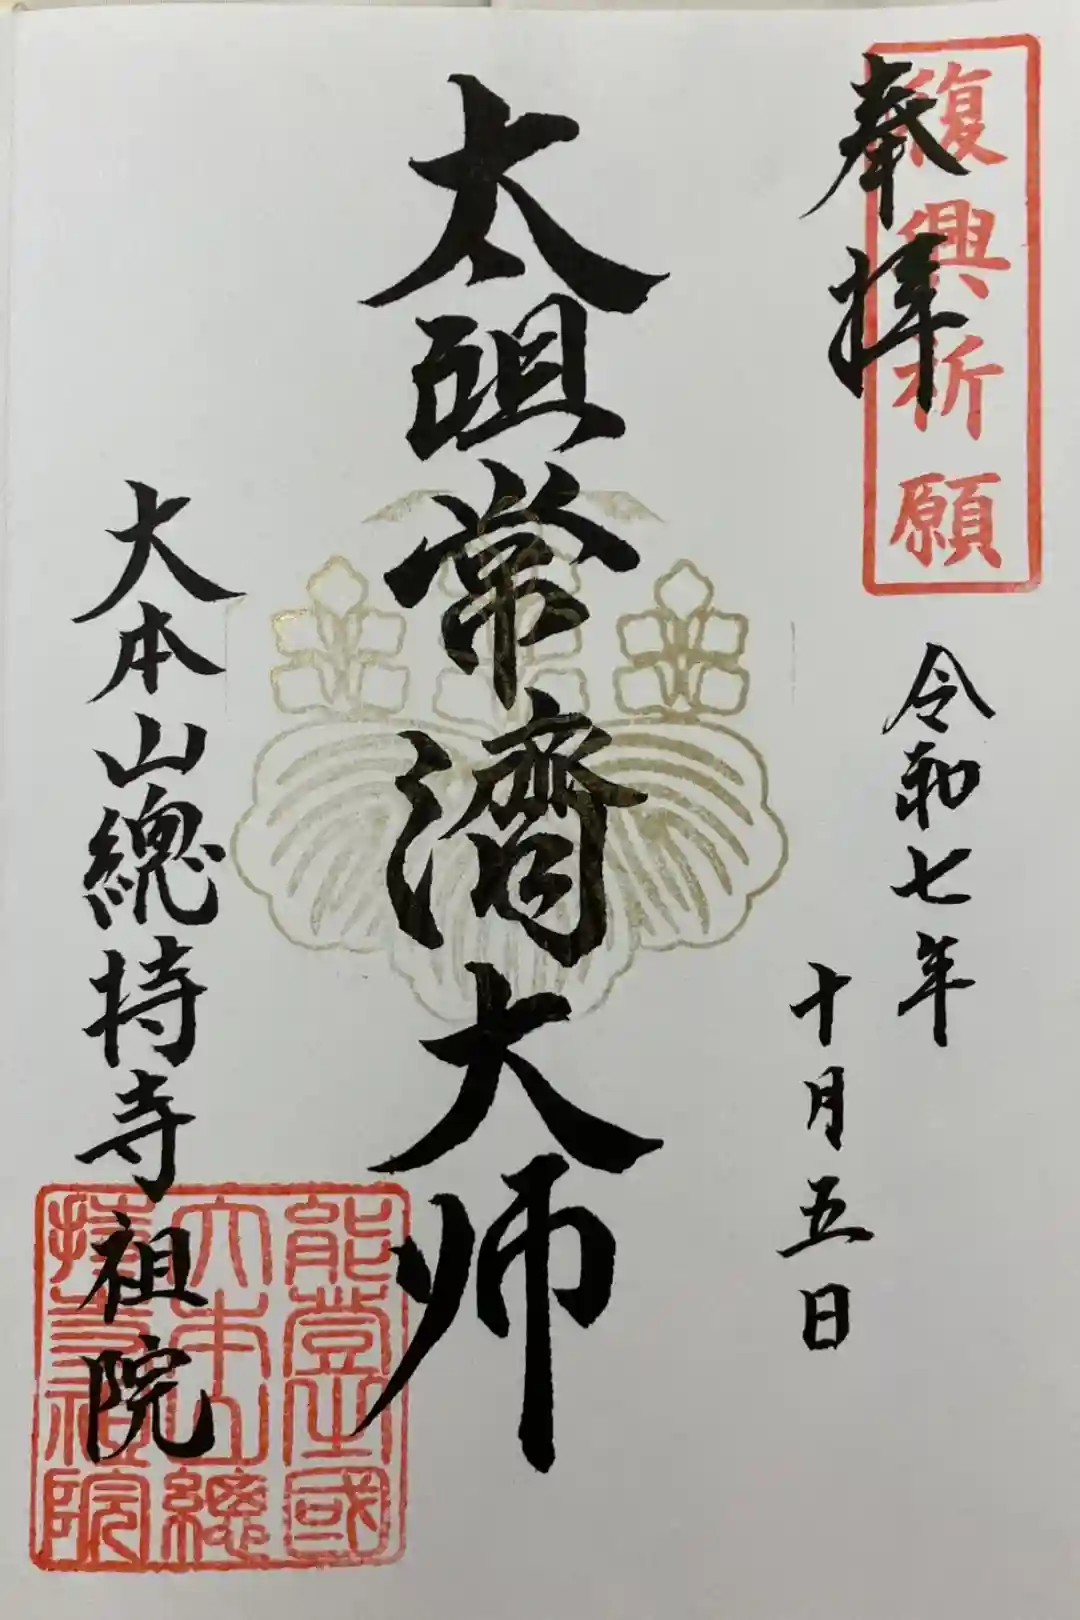 復興祈願
奉拝
令和七年
十月五日
太祖常濟大师
大本山總持寺祖院
能登之國
大本山總
持寺祖院